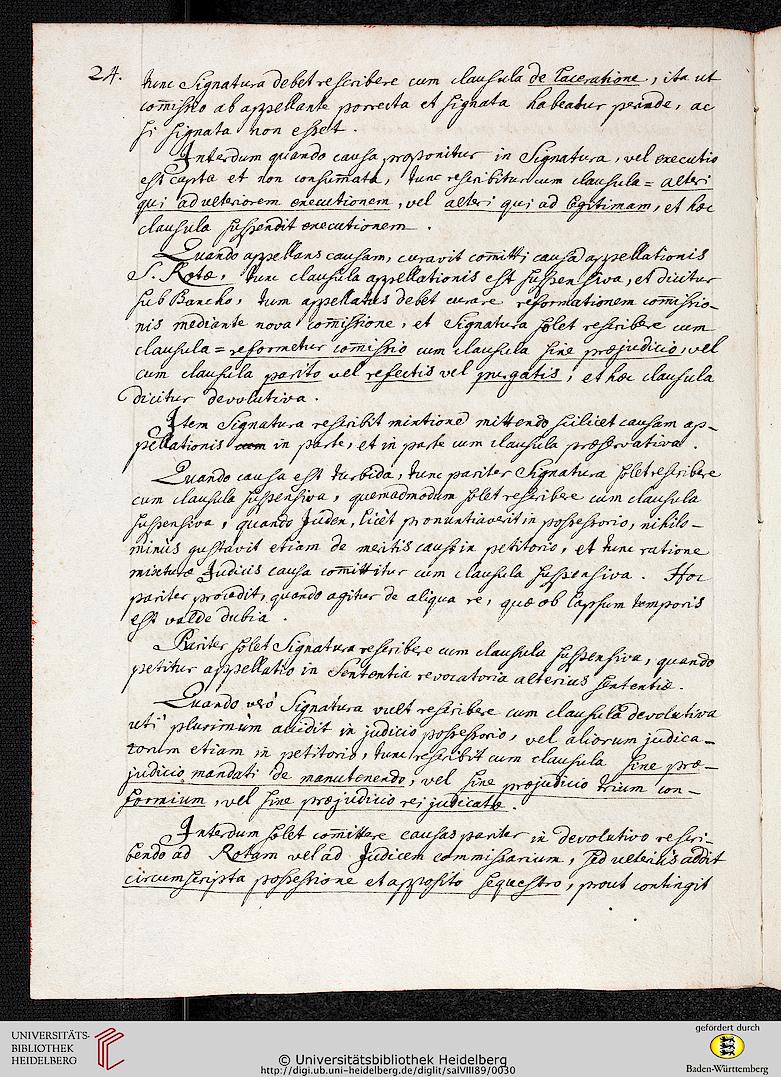 24.
tunc Signatura debet rescribere cum clausula de laceratione, ita ut
com̄issio ab appellante porrecta et signata habeatur perinde, ac
si signata non esset.
Interdum quando causa proponitur in Signatura, vel executio
est cæpta et non consumata, tunc rescribitur cum clausula = alteri
qui ad ulteriorem executionem, vel alteri qui ad legitimam, et hæc
clausula suspendit executionem.
Quando appellans causam, curavit com̄itti causã appellationis
S. Rotæ, tunc clausula appellationis est suspensiva, et dicitur
sub Bancho, tum appellatus debet curare reformationem com̄issio-
nis mediante nova com̄issione, et Signatura solet rescribere cum
clausula = reformetur com̄issio cum clausula sine præjudicio, vel
cum clausula parito vel refectis vel purgatis, et hæc clausula
dicitur devolutiva.
Item Signatura rescribit mittendo scilicet causam ap-
pellationis in parte, et in parte cum clausula præservativa.
Quando causa est turbida, tunc pariter Signatura solet rescribere
cum clausula suspensiva, quemadmodum solet rescribere cum clausula
suspensiva, quando Judex, licèt pronuntiaverit in possessorio, nihilo-
minùs gustavit etiam de meritis causæ in petitorio, et tunc ratione
mixturæ Judicis causa com̄ittitur cum clausula suspensiva. Hoc
pariter procedit, quando agitur de aliqua re, quæ ob lapsum temporis
est valde dubia.
Pariter solet Signatura rescribere cum clausula suspensiva, quando
petitur appellatio in Sententia revocatoria alterius sententiæ.
Quando verò Signatura vult rescribere cum clausula devolutiva
uti plurimùm accidit in judicio possessorio, vel aliorum judica-
torum etiam in petitorio, tunc rescribit cum clausula sine præ-
judicio mandati de manutenendo, vel sine præjudicio trium con-
formium, vel sine præjudicio rei judicatæ.
Interdum solet com̄ittere causas pariter in devolutivo rescri-
bendo ad Rotam vel ad Judicem commissarium, sed ulteriùs addit
circumscripta possessione et apposito sequestro, prout contingit
UNIVERSITÄTS-
BIBLIOTHEK
HEIDELBERG
© Universitätsbibliothek Heidelberg
http://digi.ub.uni-heidelberg.de/diglit/salVIII89/0030
gefördert durch
Baden-Württemberg